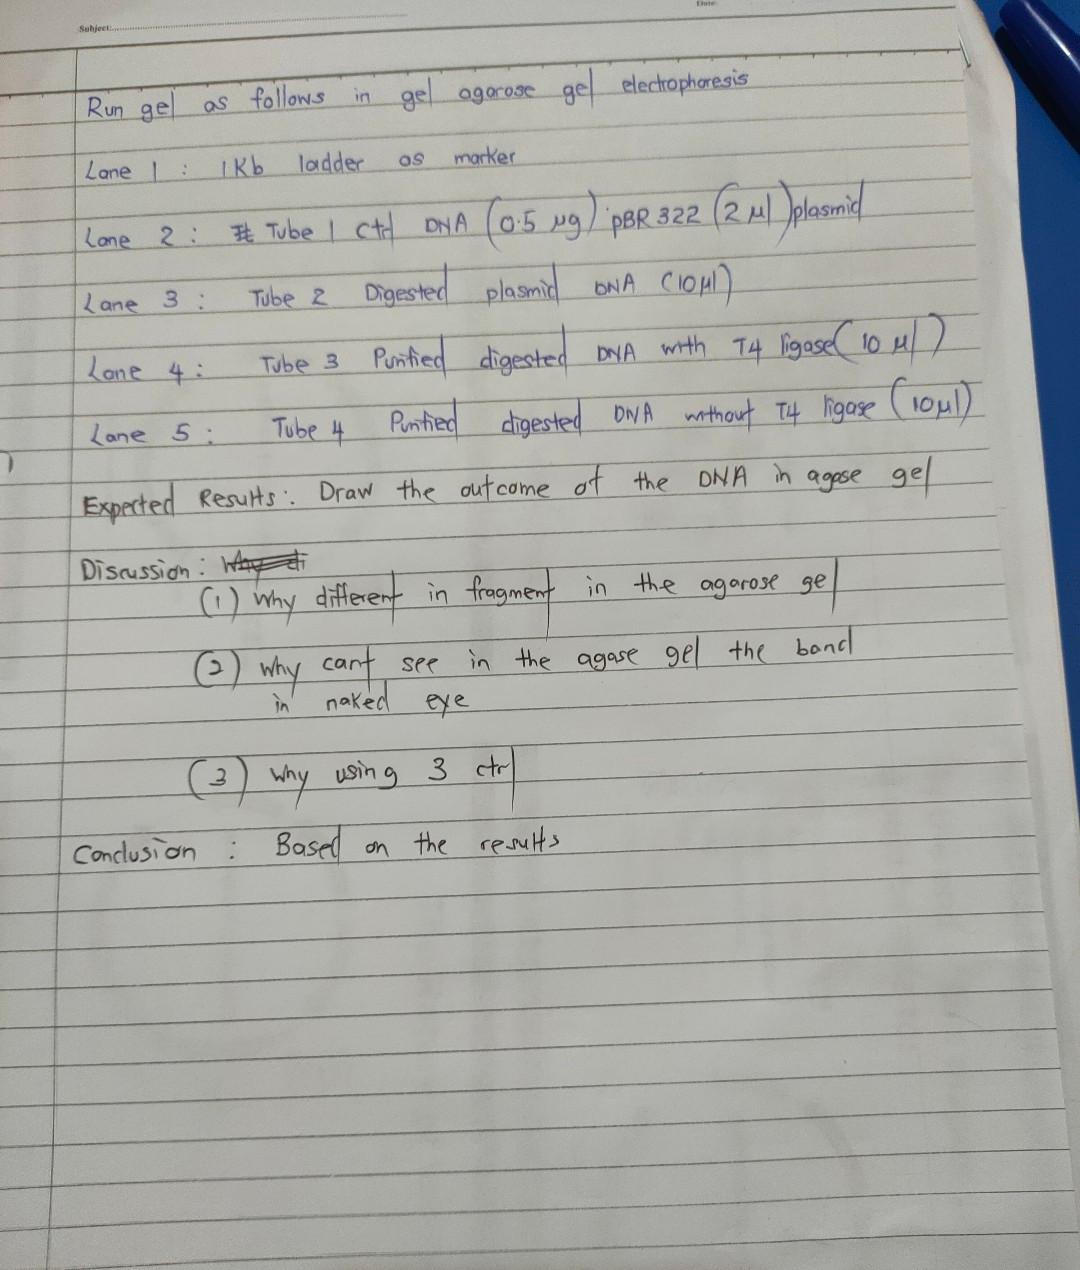 Subject:
Date:
Run gel as follows in gel agarose gel electrophoresis
Lane 1 : 1Kb ladder as marker
Lane 2 : Tube 1 ctrl DNA (0.5 μg) pBR 322 (2 μl) plasmid
Lane 3 : Tube 2 Digested plasmid DNA (10μl)
Lane 4 : Tube 3 Purified digested DNA with T4 ligase (10 μl)
Lane 5 : Tube 4 Purified digested DNA without T4 ligase (10μl)
Expected Results: Draw the outcome of the DNA in agose gel
Discussion :
(1) Why different in fragment in the agarose gel
(2) why cant see in the agase gel the band
in naked eye
(3) Why using 3 ctrl
Conclusion : Based on the results